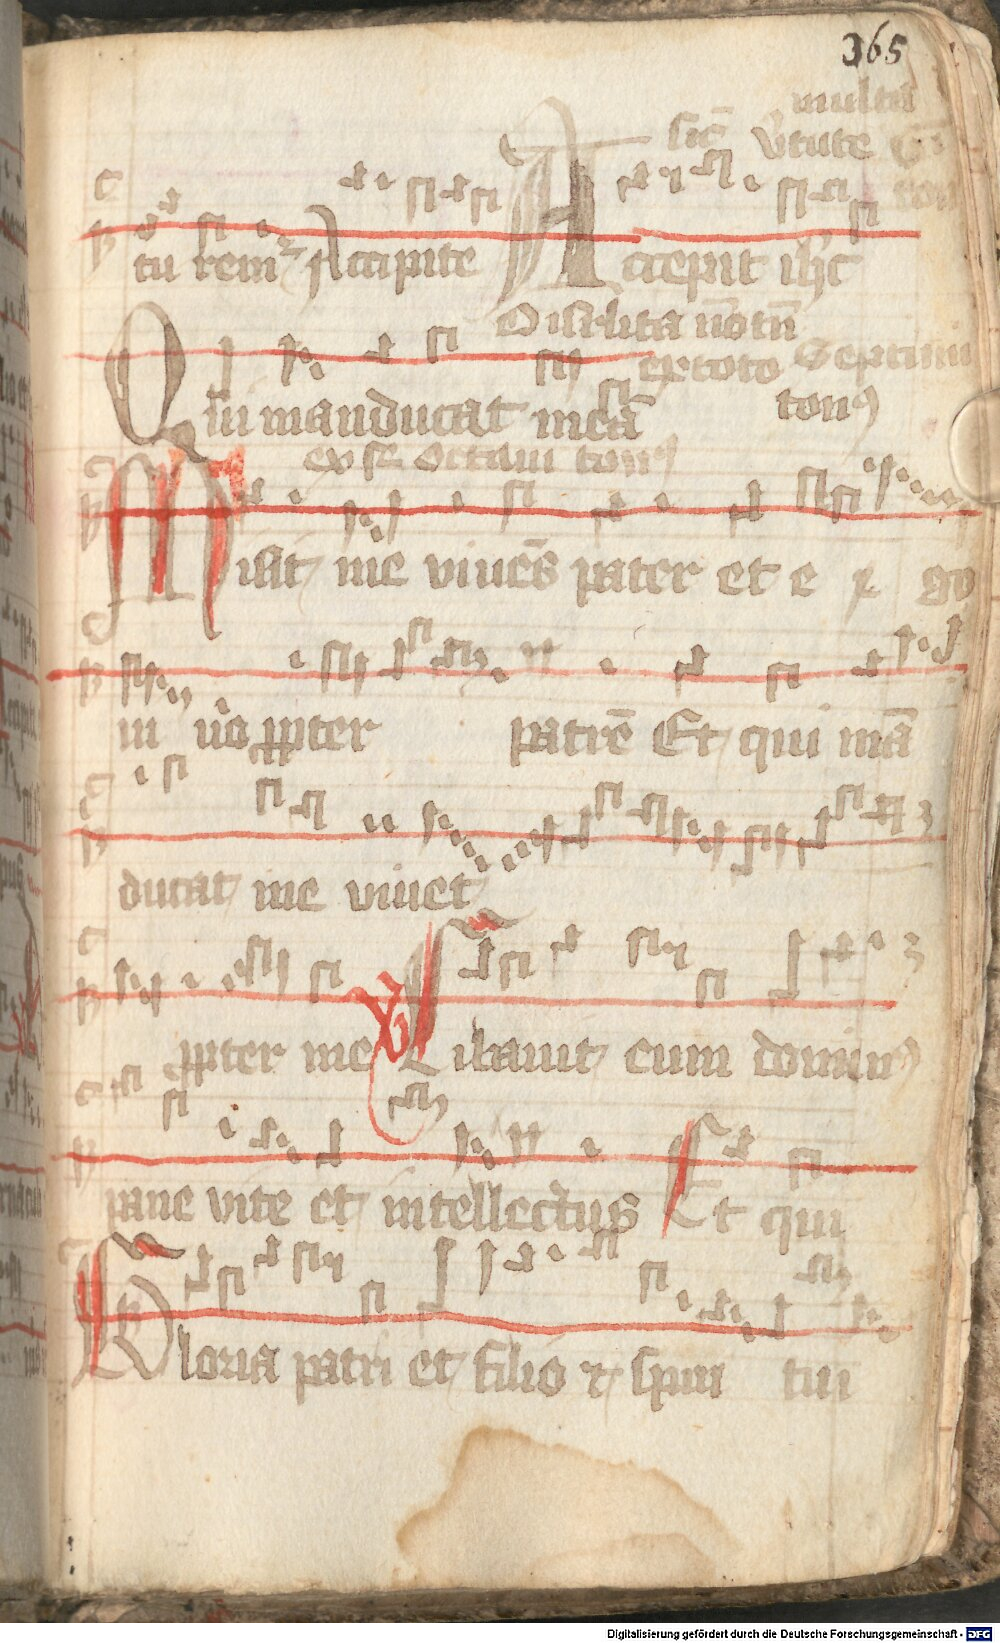 365
multa
sic̄ v̾tute
tu rem Accipite Accepit ih̾c
Disrlita
ex toto Septimi
Qui manducat meā tonꝰ
Octaui tonꝰ
Misit me viuēs pater et e go
in v̾o ꝓpter patrē Et qui mā
ducat me viuet
ꝓpter me V Cibauit eum dominꝰ
pane vite et intellectus Et qui
Gloria patri et filio ⁊ spiri tui
Digitalisierung gefördert durch die Deutsche Forschungsgemeinschaft - DFG